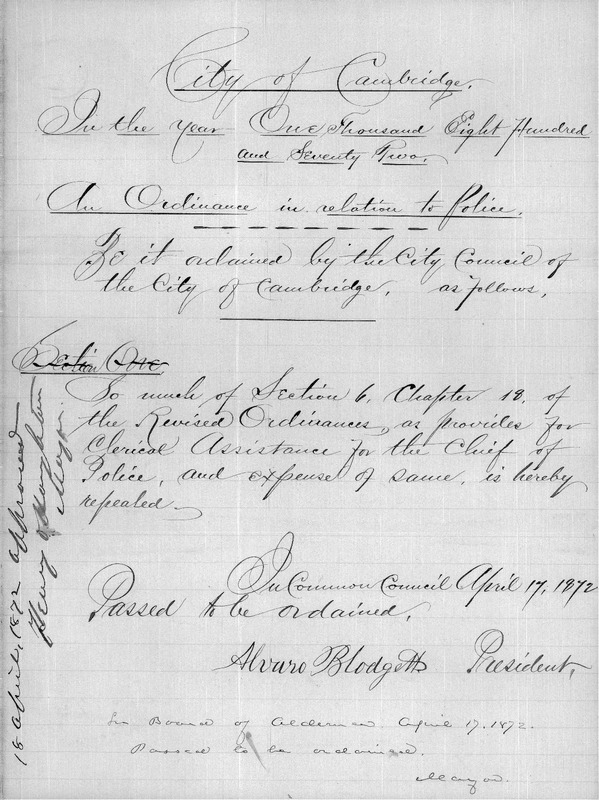 City of Cambridge.
In the year One Thousand Eight Hundred
and Seventy Two.
An Ordinance in relation to Police.
Be it ordained by the City Council of
the City of Cambridge, as follows,
Section One
So much of Section 6, Chapter 18, of
the Revised Ordinances, as provides for
Clerical Assistance for the Chief of
Police, and expense of same, is hereby
repealed.
In Common Council April 17, 1872
Passed to be ordained.
Alvaro Blodgett President,
In Board of Aldermen. April 17. 1872.
Passed to be ordained.
Mayor.
18 April, 1872 approved
Henry O Houghton
Mayor.